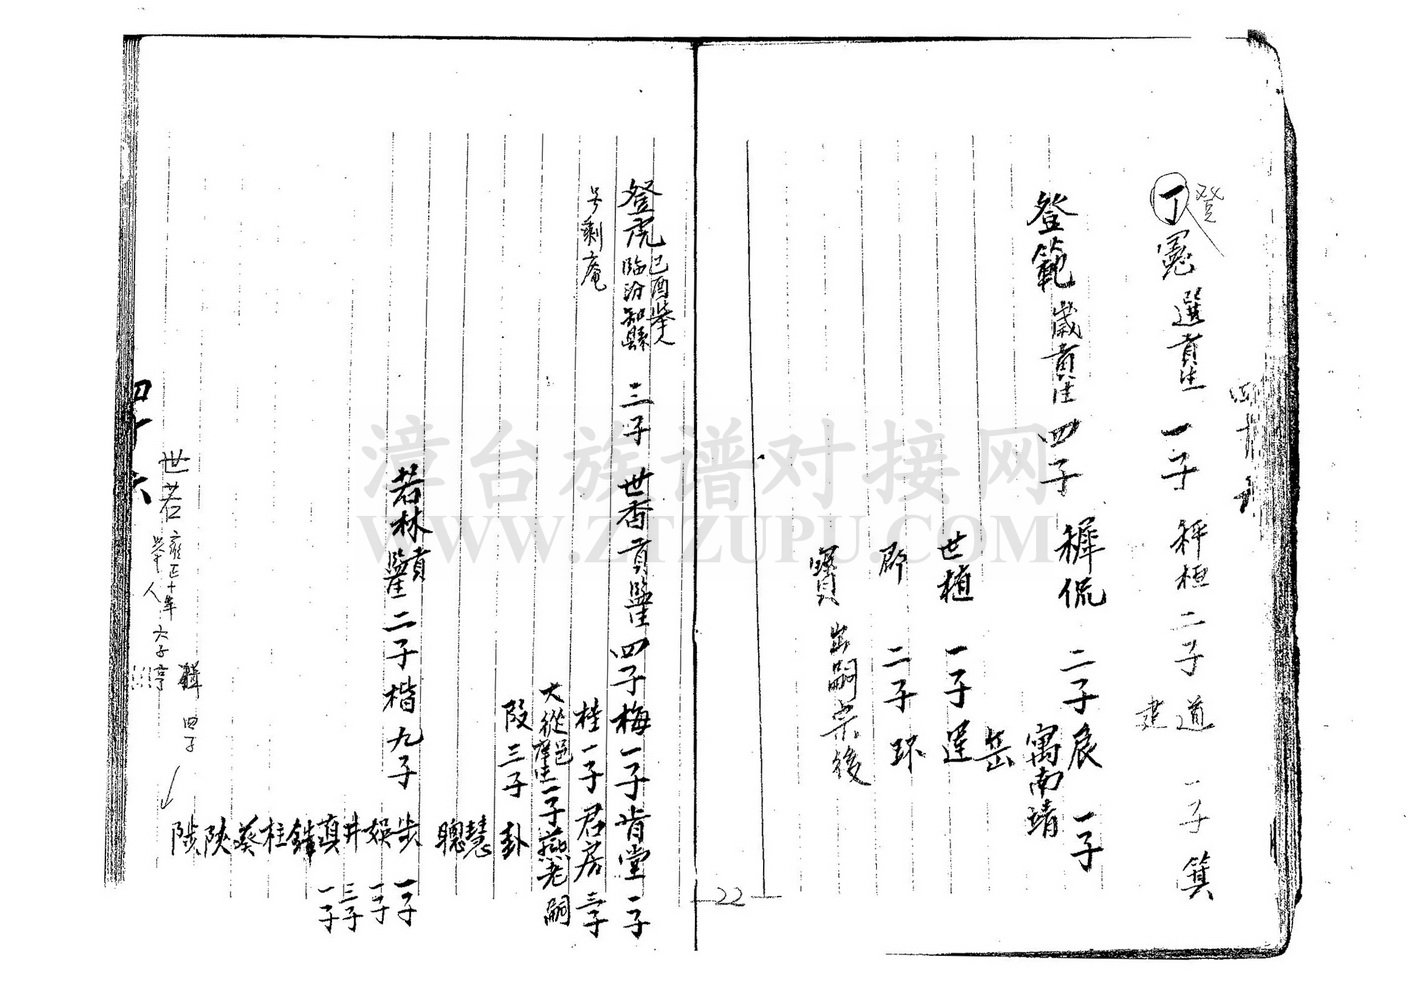 登
丁憲選貢生 一子 秤桓 二子 道 一子 箕
建
登範歲貢生 四子 樨侃 二子 辰 一子
寓南靖
岳
世植 一子 暹
郡 二子 环
寶 出嗣宗後
登虎 己酉舉人 臨汾知縣 三子 世香貢監 四子 梅 一子 肯堂 一子
号剩庵
桂 一子 君房 三子
大從邑庠生 一子 燕老嗣
段 三子 卦
慧
聰
若林貢監 二子 楷 九子 步 一子
娱 一子
井 三子
真 一子
鋒
柱
葵
陝
陟
世若 雍正十年舉人 六子 亨
輝 四子
四十六
22
漳台族谱对接网
WWW.ZTZUPU.COM